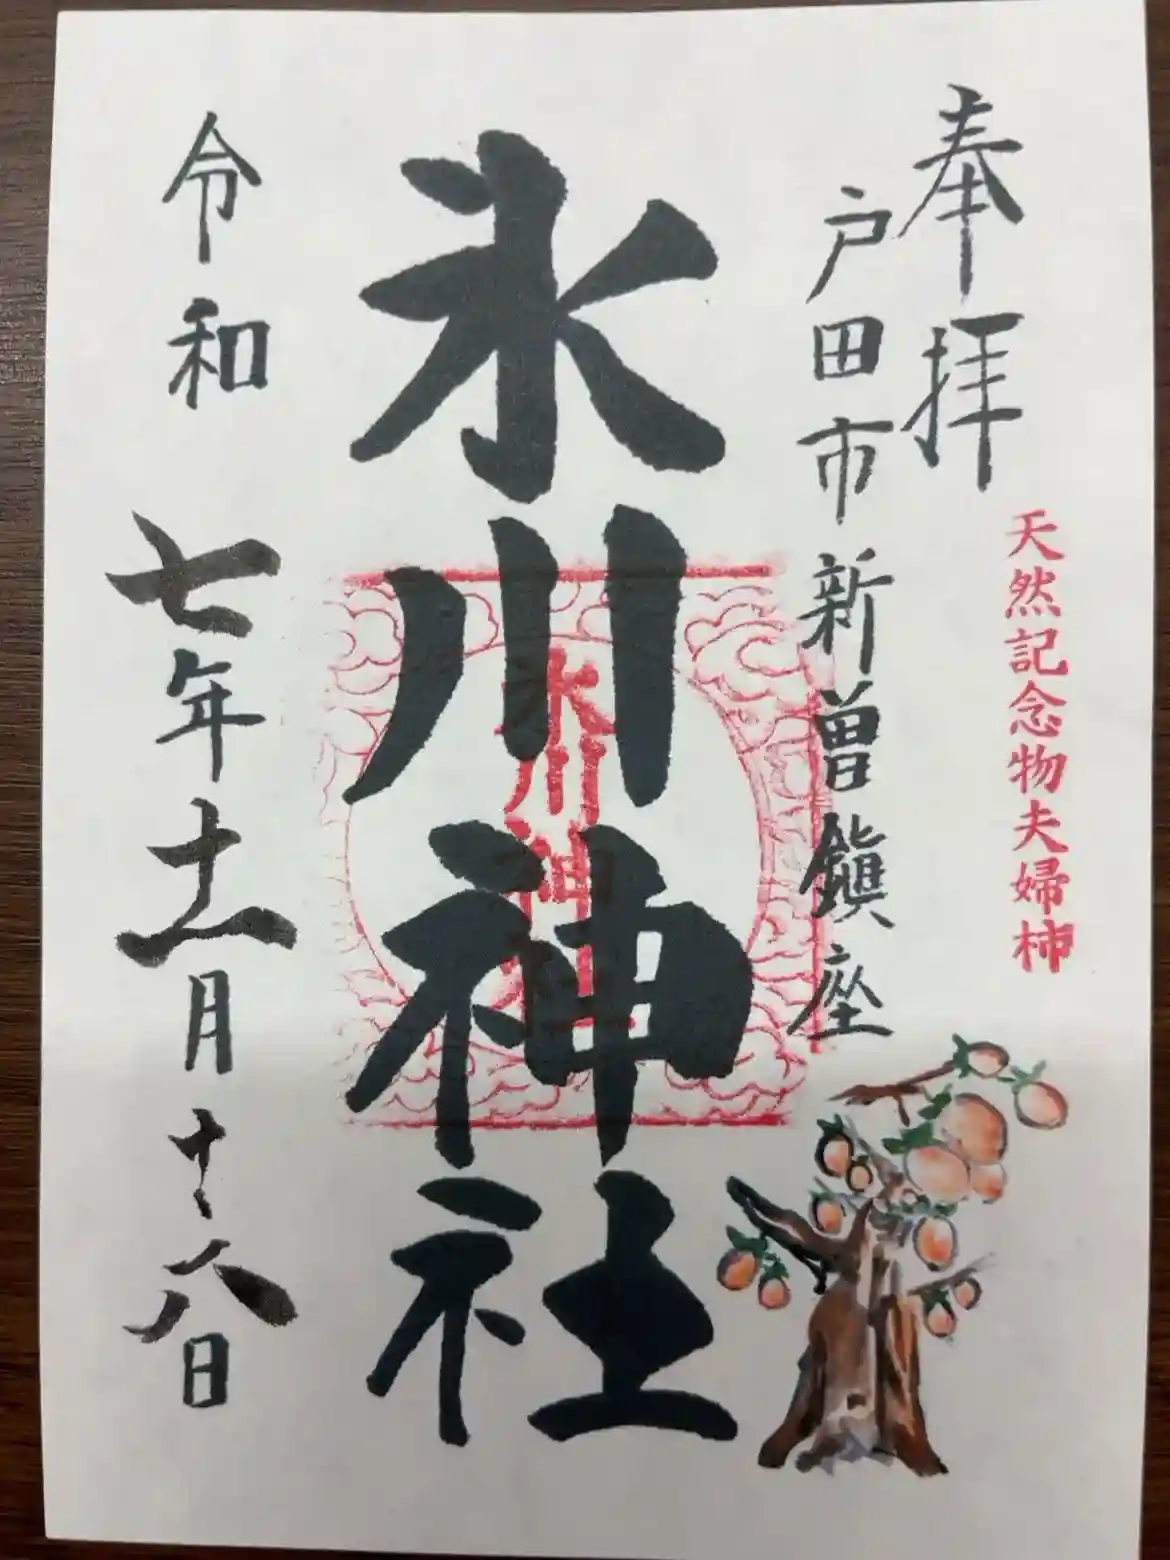 奉拝
天然記念物夫婦柿
戸田市新曽鎮座
氷川神社
氷川神社
令和七年十一月十八日